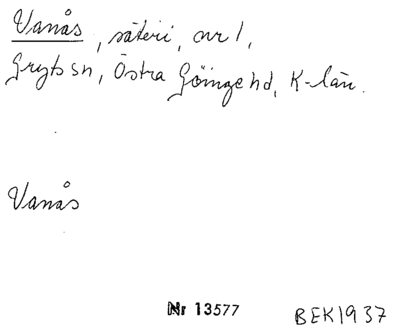 Vanås, säteri, nr 1,
Gryts sn, Östra Göinge hd, K-län.
Vanås
Nr 13577
BEK1937